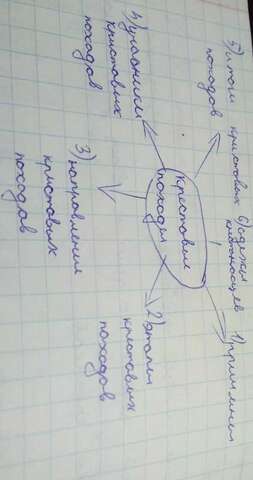 Крестовые
походы
1) причины
2) этапы
крестовых
походов
3) направления
кристовых
походов
4) участники
кристовых
походов
5) итоги кристовых
походов
6) одежды
крестоносцев